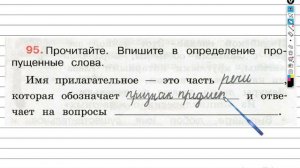 95. Прочитайте. Впишите в определение про-
пущенные слова.
Имя прилагательное — это часть речи,
которая обозначает признак предмет и отве-
чает на вопросы